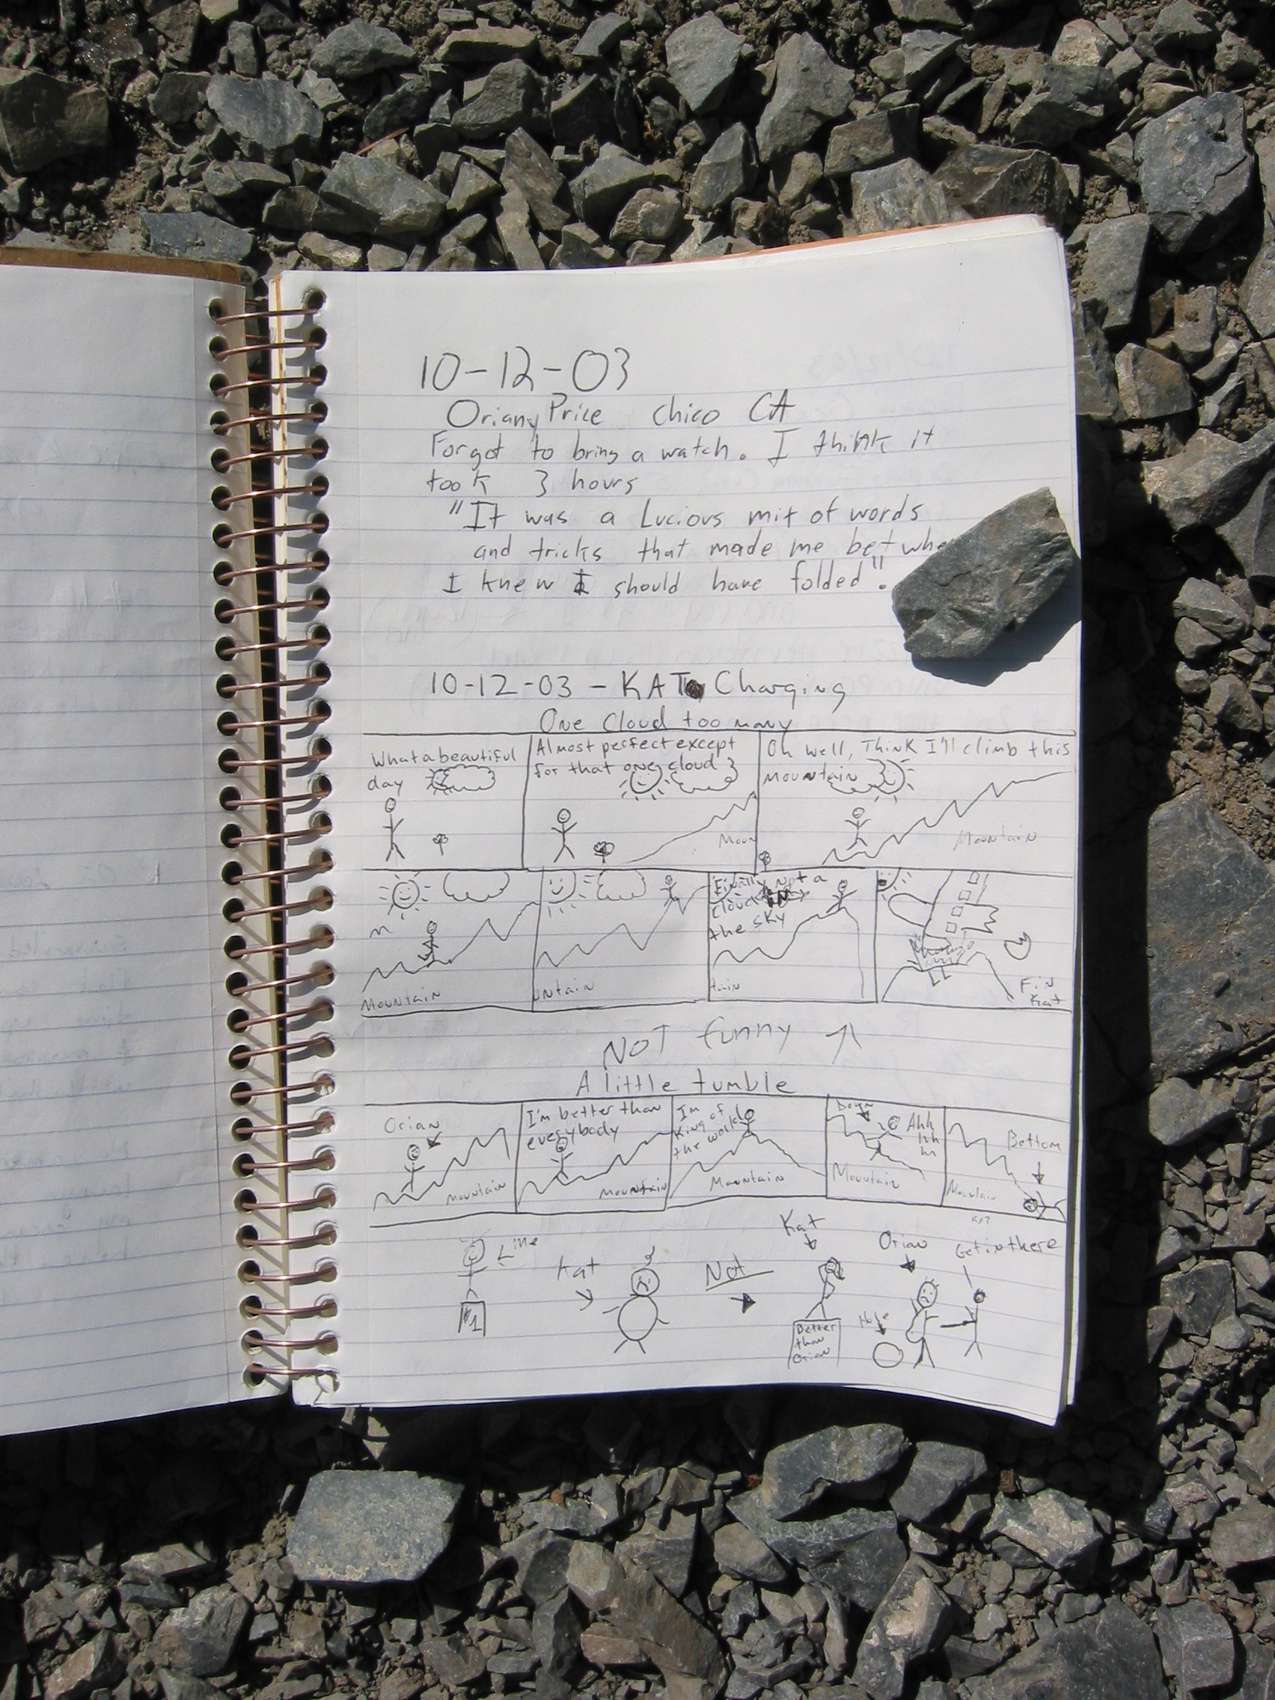 10-12-03
Oriany Price Chico CA
Forgot to bring a watch. I think it
took 3 hours
"It was a Lucious mit of words
and tricks that made me bet whe
I knew I should have folded".
10-12-03 - KAT Charging
One Cloud too many
What a beautiful
day
Almost perfect except
for that one cloud
Oh well, Think I'll climb this
Mountain
Moun
Mountain
Finally not a
cloud in
the sky
Mountain
untain
tain
Fin
Kat
NOT funny
A little tumble
Orian
Mountain
I'm better than
everybody
Mountain
Im
King of
the world
Mountain
Down
Ahh
hh
hh
Mountain
Bottom
Mountain
Line
#1
Kat
Not
Kat
Better
than
Orian
Orian
Get in there
Hole